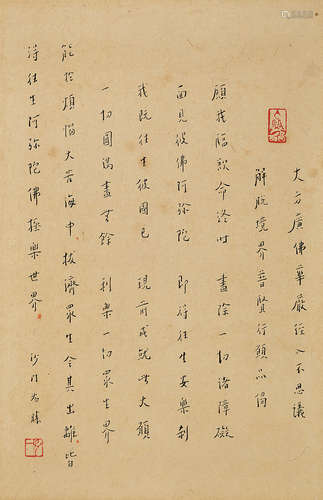 大方廣佛華嚴經入不思議
解脫境界普賢行願品偈
願我臨欲命終時 盡除一切諸障礙
面見彼佛阿弥陀 即得往生安樂剎
我既往生彼國已 現前成就此大願
一切圓滿盡無餘 利樂一切眾生界
能於煩惱大苦海中拔濟眾生令其出離皆
得往生阿弥陀佛極樂世界
沙門